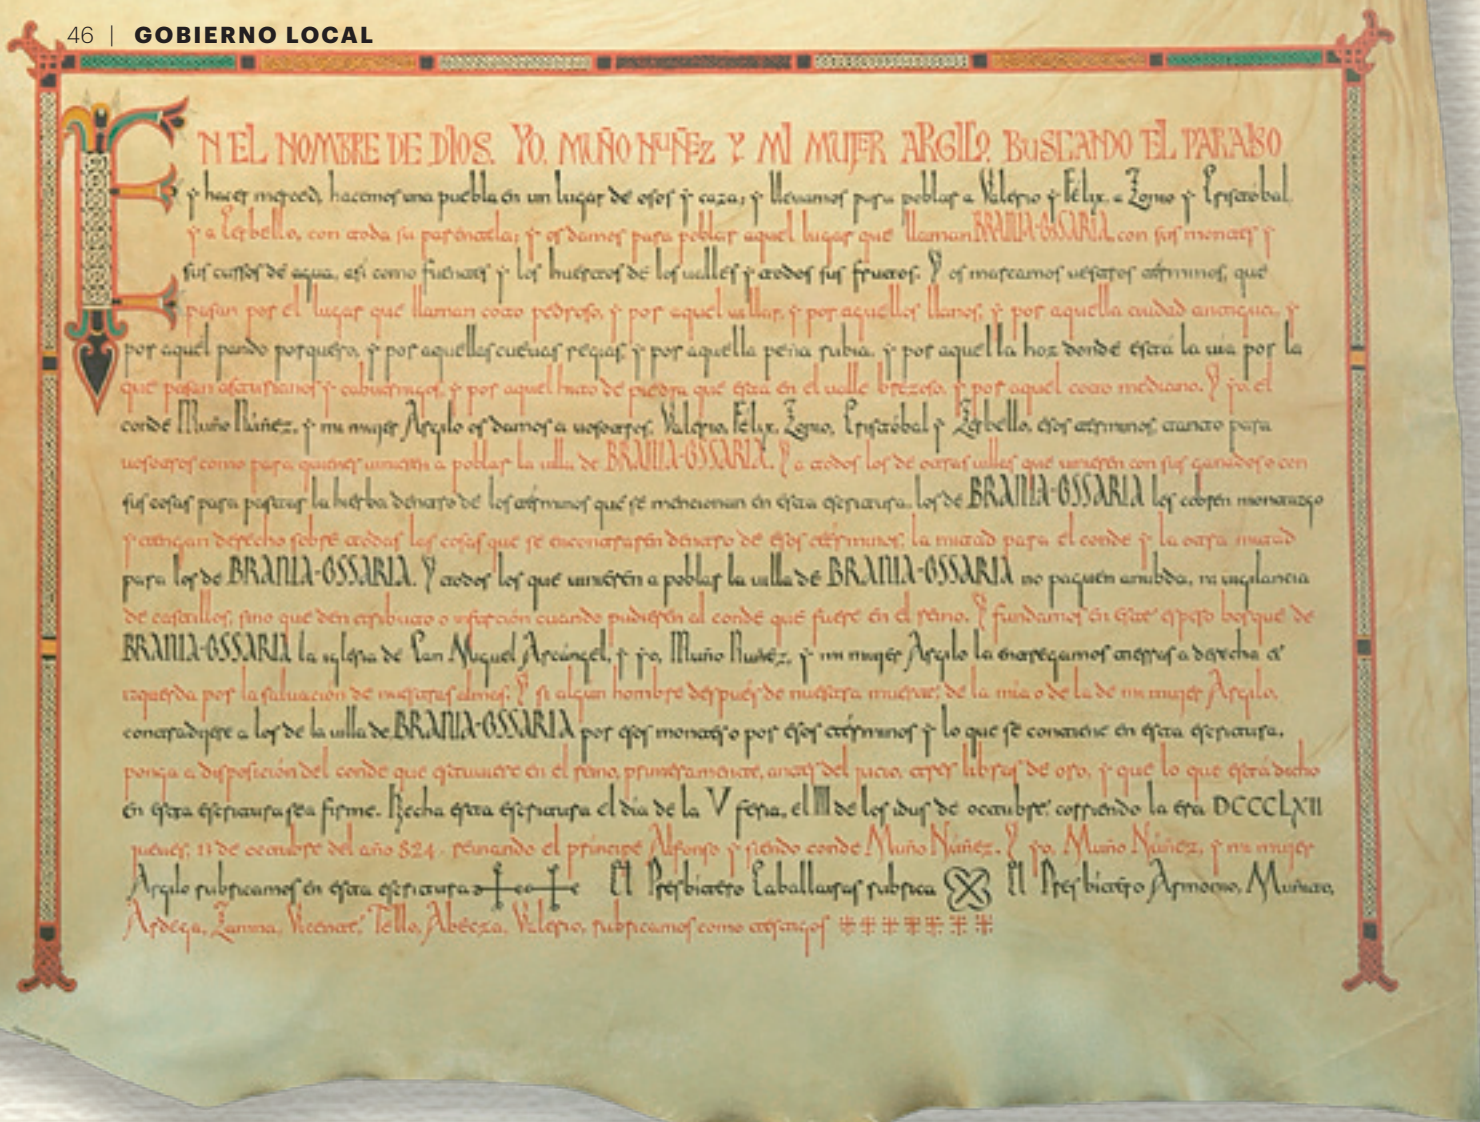 46 | GOBIERNO LOCAL
EN EL NOMBRE DE DIOS. YO, MUÑO NUÑEZ Y MI MUJER ARGILO, BUSCANDO EL PARAISO
y hacer merced, hacemos una puebla en un lugar de osos y caza; y llevamos para poblar a Valerio y Félix, a Zonio y Cristóbal,
y a Cerbello, con toda su parentela; y os damos para poblar aquel lugar que llaman BRANIA-OSSARIA, con sus montes y
sus cursos de agua, así como fuentes y los huertos de los valles y todos sus frutos. Y os marcamos vestros términos, que
pasan por el lugar que llaman coto pedroso, y por aquel villar, y por aquellos llanos, y por aquella ciudad antigua, y
por aquel pando porquero, y por aquellas cuevas regias, y por aquella peña rubia, y por aquella hoz donde está la vía por la
que pasan asturianos y cabuernigos, y por aquel hito de piedra que está en el valle brezoso, y por aquel coto mediano. Y yo, el
conde Muño Núñez, y mi mujer Argilo os damos a vosotros, Valerio, Félix, Zonio, Cristóbal y Zerbello, esos términos, tanto para
vosotros como para quienes vinieren a poblar la villa de BRANIA-OSSARIA. Y a todos los de otras villas que vinieren con sus ganados o con
sus cosas para pastar la hierba dentro de los términos que se mencionan en esta escritura, los de BRANIA-OSSARIA les cobren montazgo
y tengan derecho sobre todas las cosas que se encontraren dentro de esos términos, la mitad para el conde y la otra mitad
para los de BRANIA-OSSARIA. Y todos los que vinieren a poblar la villa de BRANIA-OSSARIA no paguen anubda, ni vigilancia
de castillos, sino que den tributo o infurción cuando pudieren al conde que fuere en el reino. Y fundamos en este espeso bosque de
BRANIA-OSSARIA la iglesia de San Miguel Arcángel, y yo, Muño Nuñez, y mi mujer Argilo la entregamos tierras a derecha e
izquerda por la salvación de nuestras almas. Y si algun hombre después de nuestra muerte, de la mia o de la de mi mujer Argilo,
contradijere a los de la villa de BRANIA-OSSARIA por esos montes o por esos términos y lo que se contiene en esta escritura,
ponga a disposición del conde que estuviere en el reino, primeramente, antes del juicio, tres libras de oro, y que lo que está dicho
en esta escritura sea firme. Hecha esta escritura el día de la V feria, el III de los idus de octubre, corriendo la era DCCCLXII
jueves, 13 de octubre del año 824. reinando el príncipe Alfonso y siendo conde Muño Núñez. Y yo, Muño Núñez, y mi mujer
Argilo rubricamos en esta escritura El Presbítero Caballarias rubrica El Presbítero Armonio, Munito,
Ardega, Zamna, Vicente, Tello, Abecza, Valerio, rubricamos como testigos